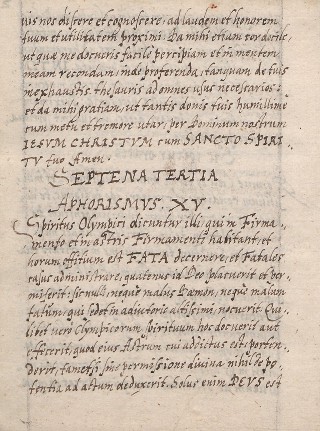 uis nos discere et cognoscere, ad laudem et honorem
suum et utilitatem proximi. Da mihi etiam cor docile,
ut quæ me docueris facile percipiam et in mentem
meam recondam, inde proferenda, tanquam de tuis
inexhaustis thesauris ad omnes usus necessarios:
et da mihi gratiam, ut tantis donis tuis humillime
cum metu et tremore utar, per Dominum nostrum
IESUM CHRISTUM cum SANCTO SPIRI
TU tuo Amen.
SEPTENA TERTIA
APHORISMUS. XV.
Spiritus Olympici dicuntur illi, qui in Firma
mento et in astris Firmamenti habitant, et
horum offitium est FATA decernere, et Fatales
casus administrare, quatenus id Deo placuerit et per
miserit: sic nulli, neque malus Dæmon, neque malum
fatum, qui sedet in adiutorie altissimi, nocuerit. Qui
libet vero Olympicorum spirituum hoc docuerit aut
effecerit, quod eius Astrum cui addictus est: porten
derit, tametsi sine permissione divina nihil de po
tentia ad actum deduxerit. Solus enim DEUS est